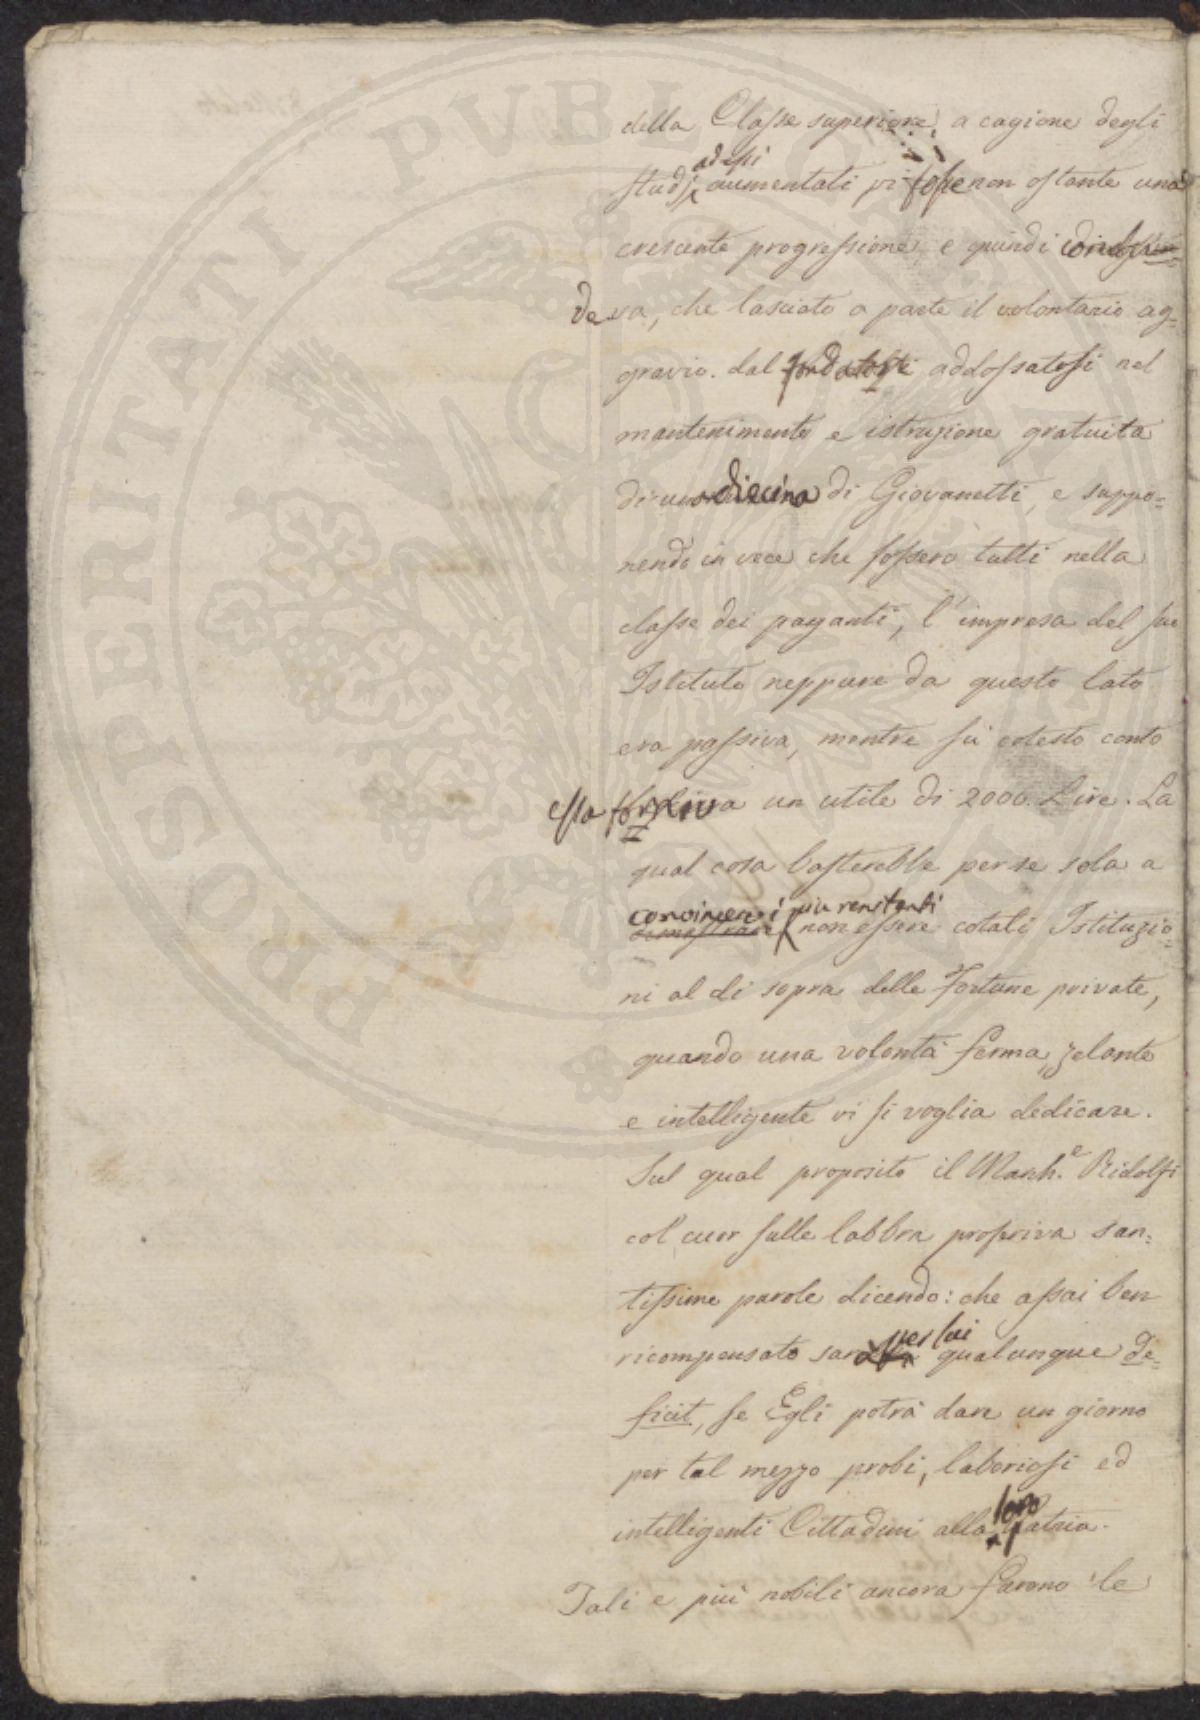 della Classe superiore, a cagione degli
studj adessi aumentati vi fosse non ostante una
crescente progressione e quindi conclu=
deva, che lasciato a parte il volontario ag=
gravio dal fondatore addossatosi nel
mantenimento e istruzione gratuita
di una diecina di Giovanetti, e suppo=
nendo in vece che fossero tutti nella
classe dei paganti, l'impresa del suo
Istituto neppure da questo lato
era passiva, mentre su cotesto conto
essa forniva un utile di 2000. Lire. La
qual cosa basterebbe per se sola a
convincere i piu renitenti
dimostrare non essere cotali Istituzio=
ni al di sopra delle Fortune private,
quando una volontà ferma, zelante
e intelligente vi si voglia dedicare.
Sul qual proposito il March.e Ridolfi
col cuor sulle labbra proferiva san=
tissime parole dicendo: che assai ben
ricompensato per lui qualunque de=
ficit, se Egli potrà dare un giorno
per tal mezzo probi, laboriosi ed
intelligenti Cittadini alla loro patria.
Tali e più nobili ancora furono le
PROSPERITATI PUBLICAE